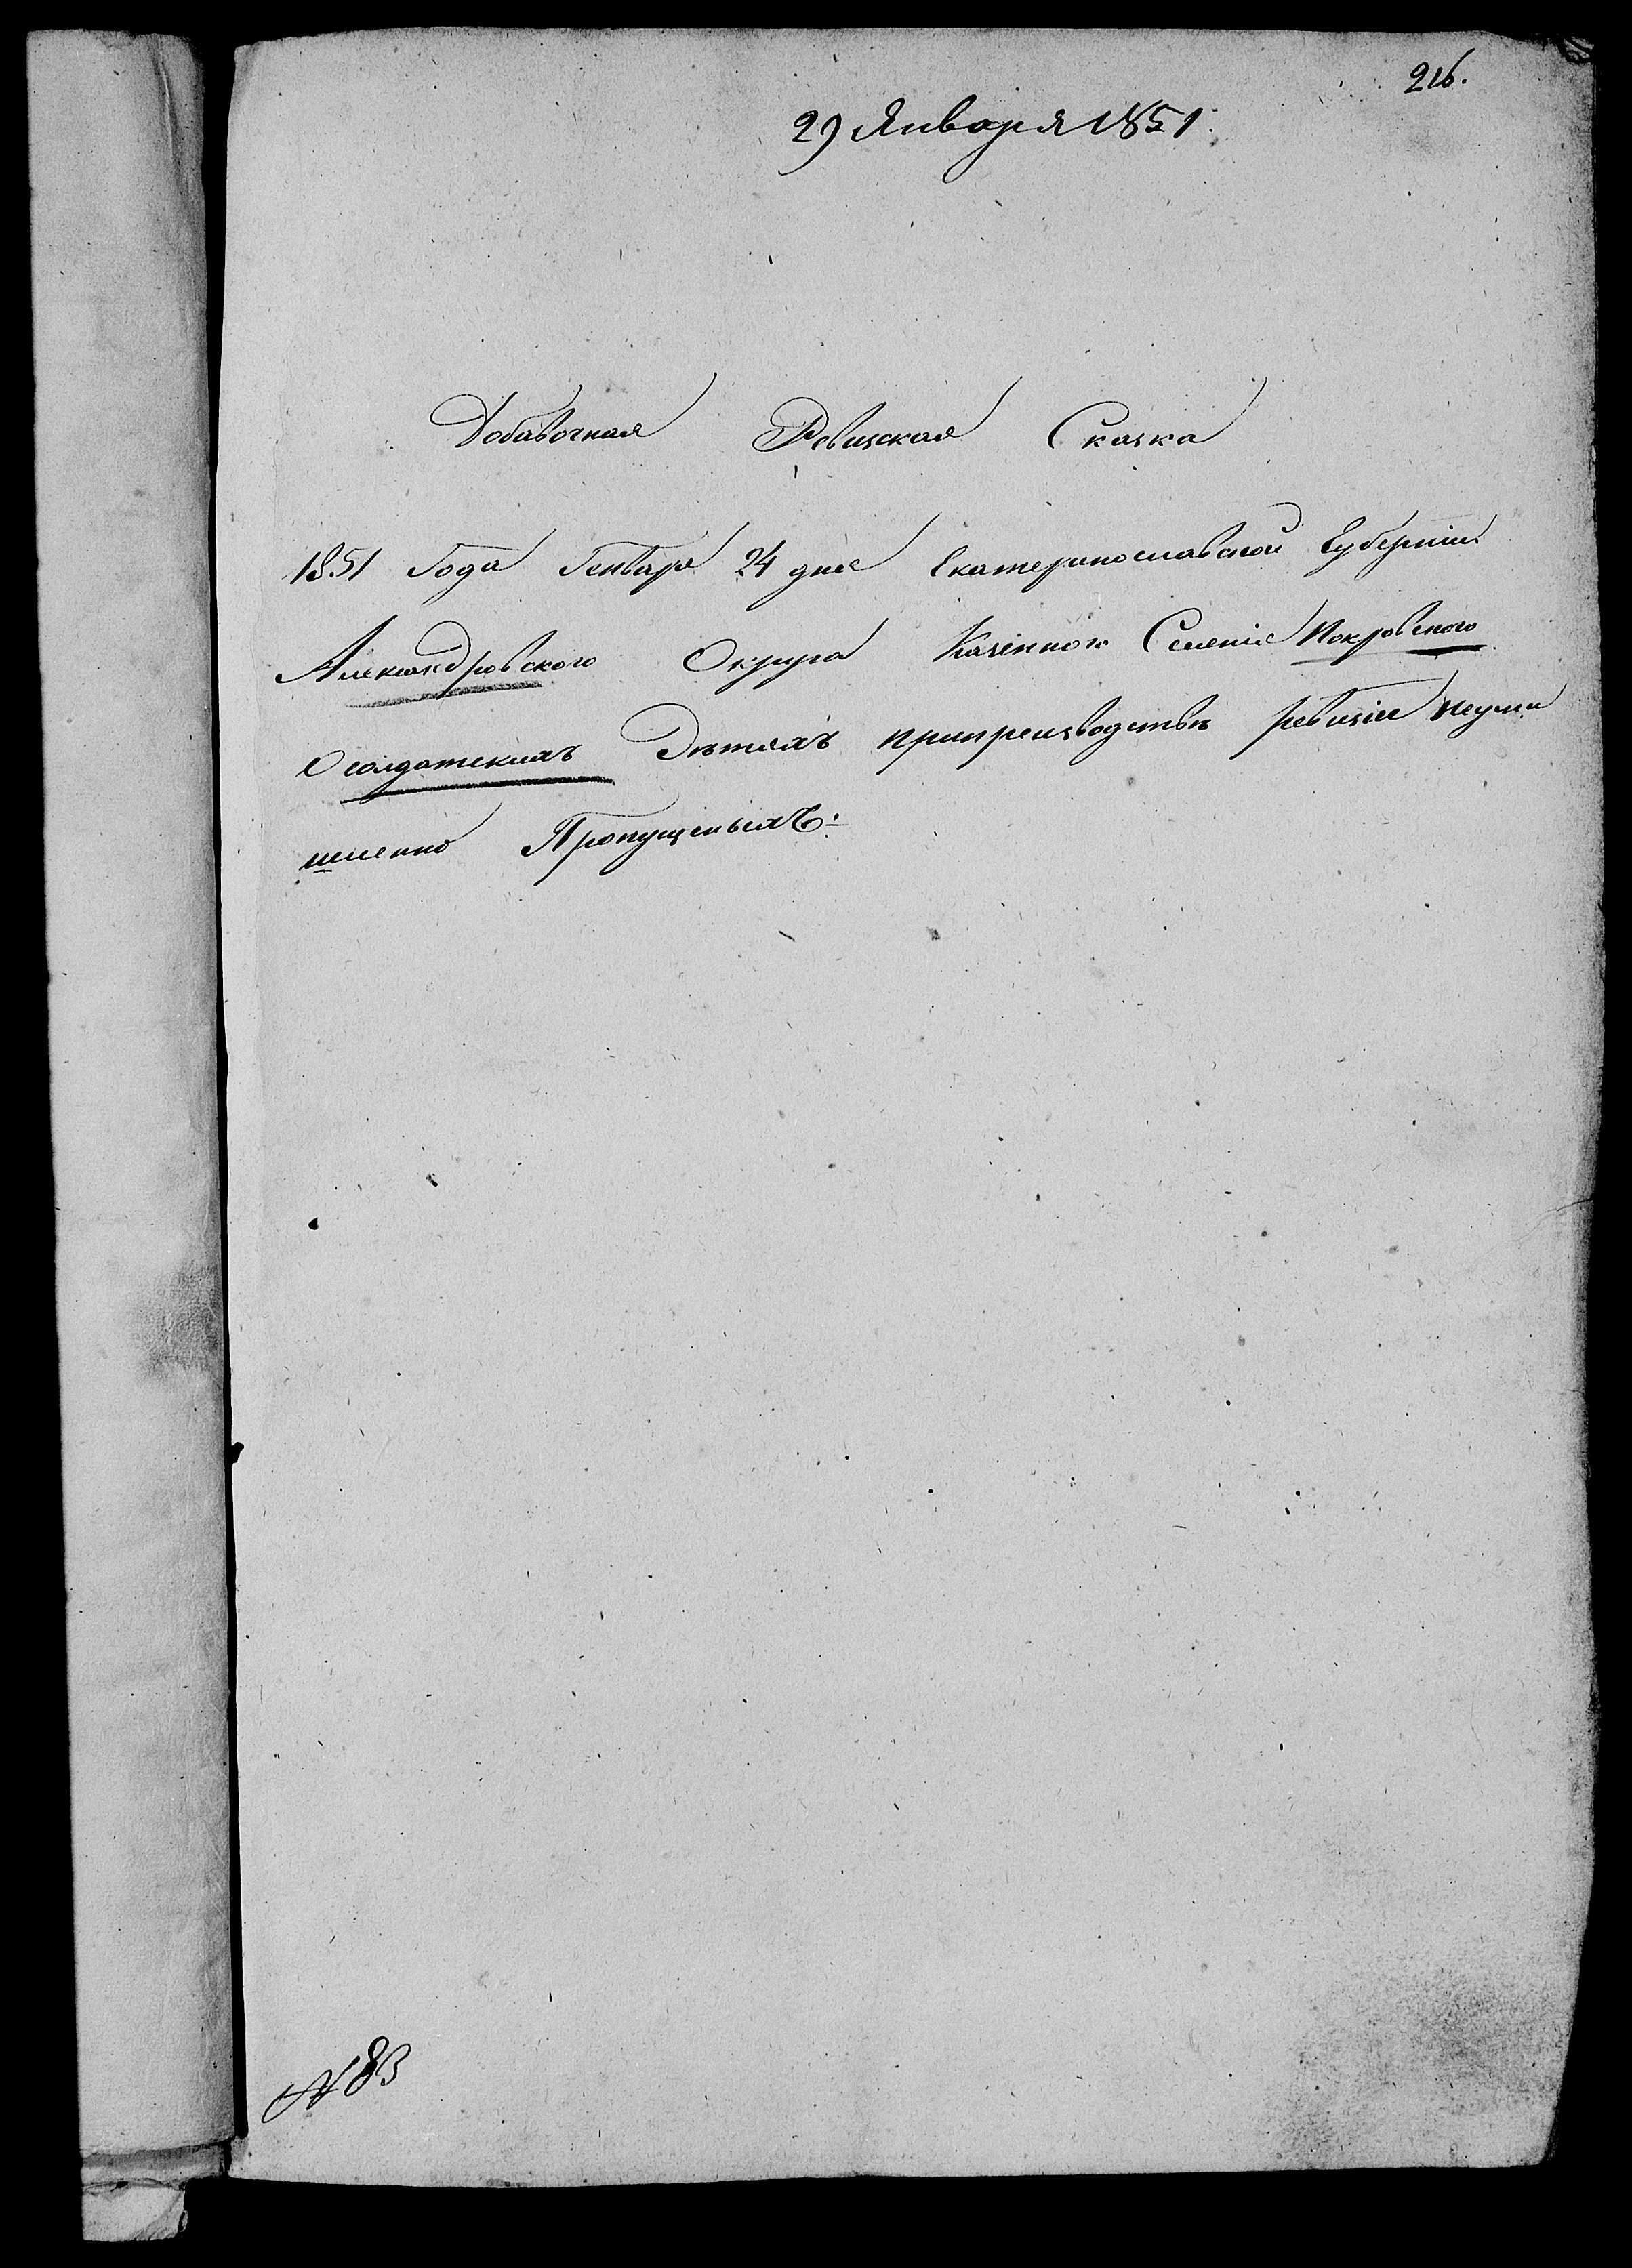 216.
29 Января 1851.
Добавочная Ревизская Сказка
1851 Года Генваря 24 дня Екатеринославской Губерніи
Александровского Округа Казенного Селенія Покровского
О солдатскихъ Дѣтяхъ припроизводствѣ ревизіи неумы
шленно Пропущеныхъ.
№ 83